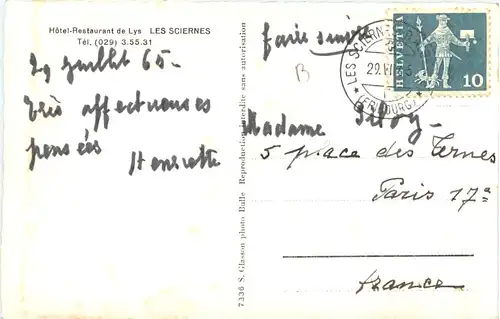 Hôtel-Restaurant de Lys LES SCIERNES
Tél. (029) 3.55.31
29 Juillet 65.
Très affectueuses
pensées
Henriette
7336 S. Glasson photo Bulle Reproduction interdite sans autorisation
faire suivre
B
LES SCIERN
29.VI
(FRIBOURG)
HELVETIA
10
Madame
5 place des Ternes
Paris 17ª
France